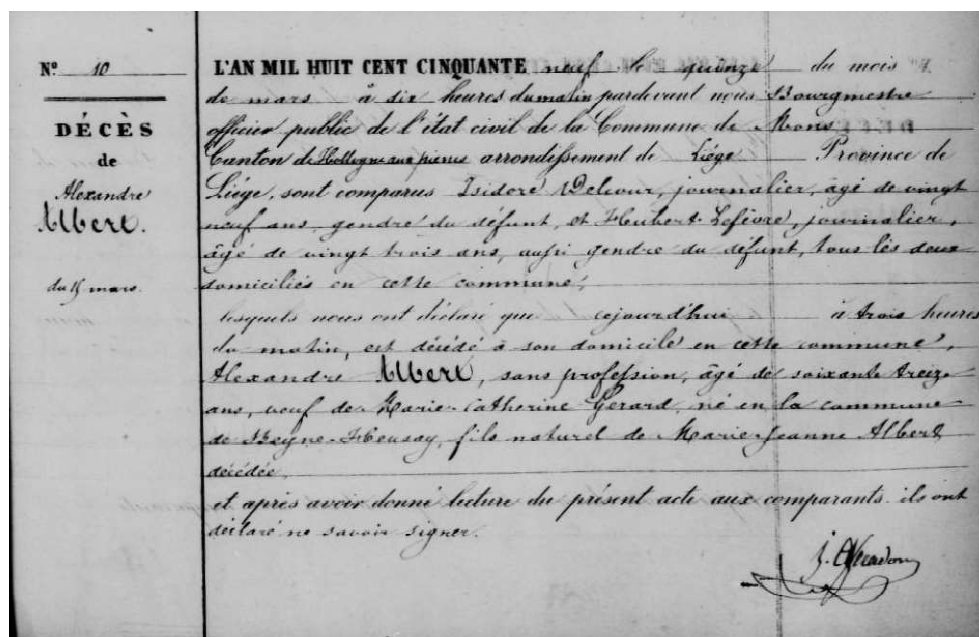 Nº 10
DÉCÈS
de
Alexandre
Albert.
du 15 mars.
L'AN MIL HUIT CENT CINQUANTE neuf le quinze du mois
de mars à dix heures du matin pardevant nous Bourgmestre
officier public de l'état civil de la Commune de Mons
Canton de Hollogne aux pierres arrondissement de Liége Province de
Liége, sont comparus Isidore Delcour, journalier, âgé de vingt
neuf ans, gendre du défunt, et Hubert Lefèvre, journalier,
âgé de vingt trois ans, aussi gendre du défunt, tous les deux
domiciliés en cette commune,
lesquels nous ont déclaré que cejourd'hui à trois heures
du matin, est décédé à son domicile en cette commune,
Alexandre Albert, sans profession, âgé de soixante treize
ans, veuf de Marie-Catherine Gerard, né en la commune
de Beyne-Heusay, fils naturel de Marie-Jeanne Albert
décédée.
et après avoir donné lecture du présent acte aux comparants ils ont
déclaré ne savoir signer.